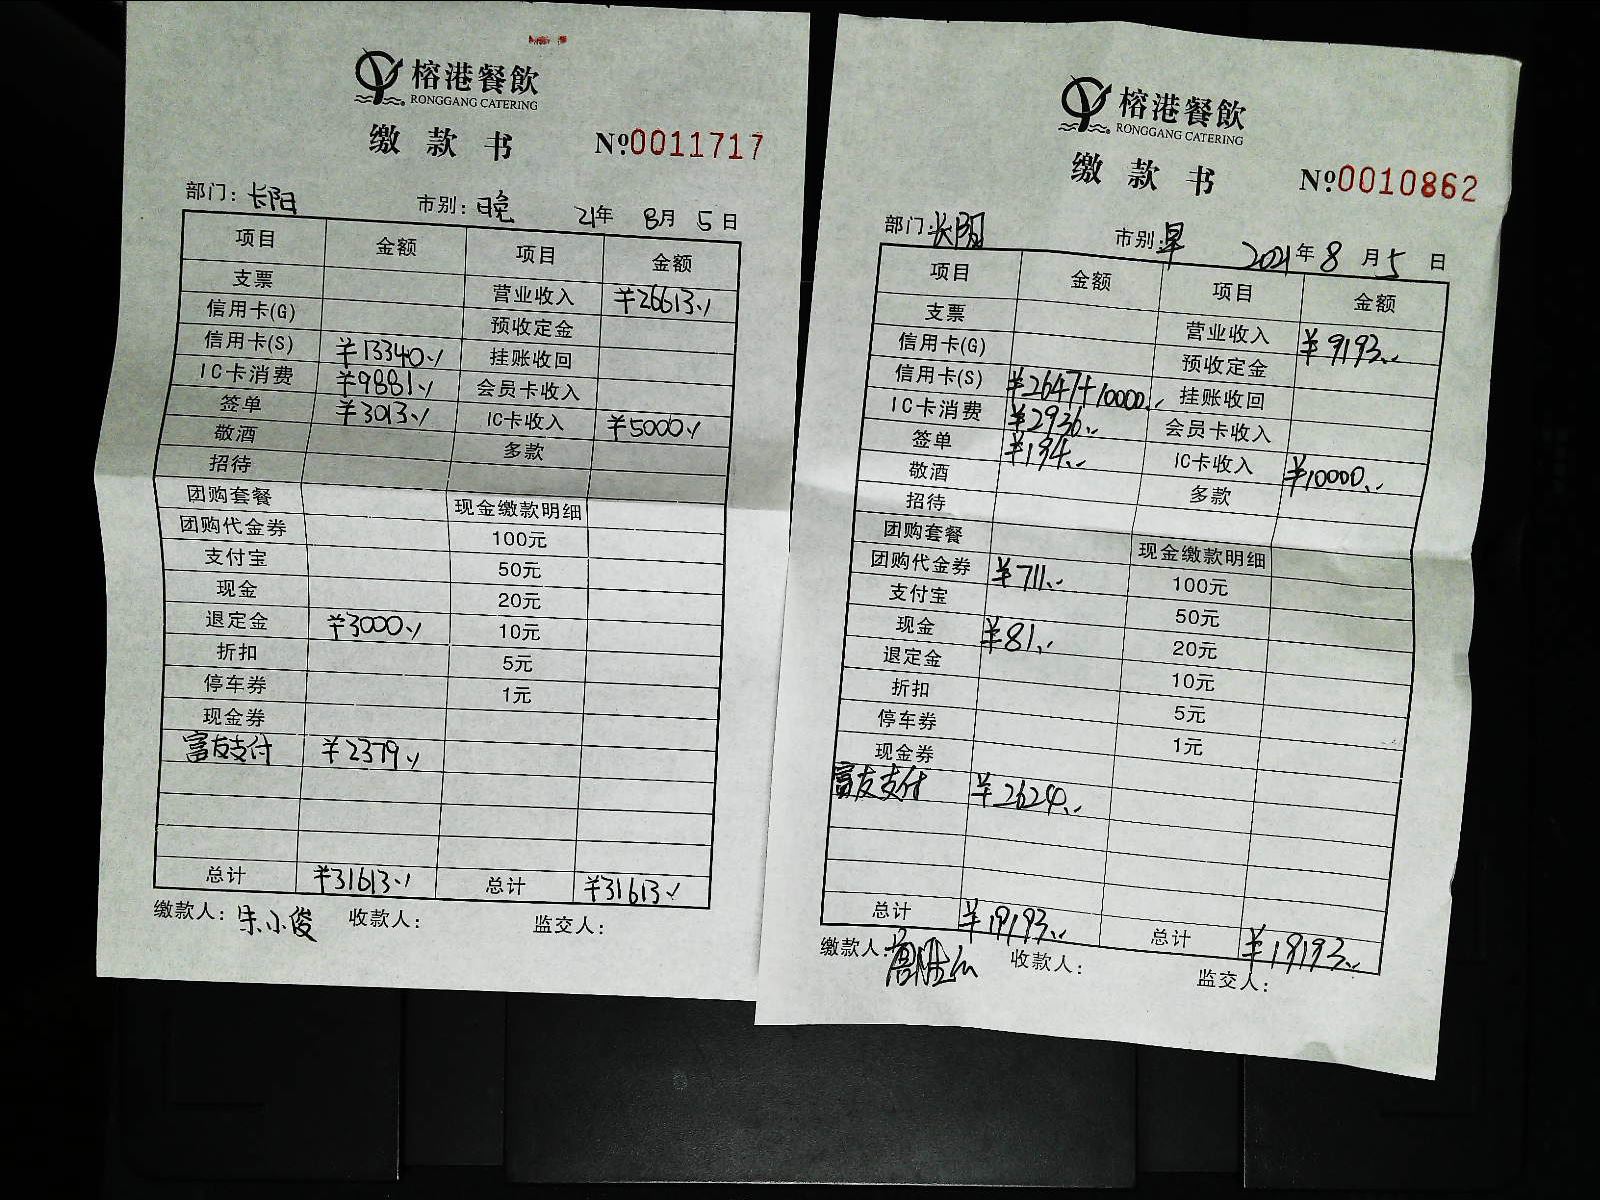 榕港餐飲
RONGGANG CATERING
缴款书 №0011717
部门: 长阳 市别: 晚 21年 8月 5日
项目 金额 项目 金额
支票 营业收入 ¥26613.
信用卡(G) 预收定金
信用卡(S) ¥13340. 挂账收回
IC卡消费 ¥9881. 会员卡收入
签单 ¥3013. IC卡收入 ¥5000.
敬酒 多款
招待
团购套餐 现金缴款明细
团购代金券 100元
支付宝 50元
现金 20元
退定金 ¥3000. 10元
折扣 5元
停车券 1元
现金券
富友支付 ¥2379.
总计 ¥31613. 总计 ¥31613.
缴款人: 朱小俊 收款人: 监交人:
榕港餐飲
RONGGANG CATERING
缴款书 №0010862
部门: 长阳 市别: 早 2021年 8月 5日
项目 金额 项目 金额
支票 营业收入 ¥9193.
信用卡(G) 预收定金
信用卡(S) ¥2647+10000. 挂账收回
IC卡消费 ¥2936. 会员卡收入
签单 ¥194. IC卡收入 ¥10000.
敬酒 多款
招待
团购套餐 现金缴款明细
团购代金券 ¥711. 100元
支付宝 50元
现金 ¥81. 20元
退定金 10元
折扣 5元
停车券 1元
现金券
富友支付 ¥2624.
总计 ¥19193. 总计 ¥19193.
缴款人: 收款人: 监交人: